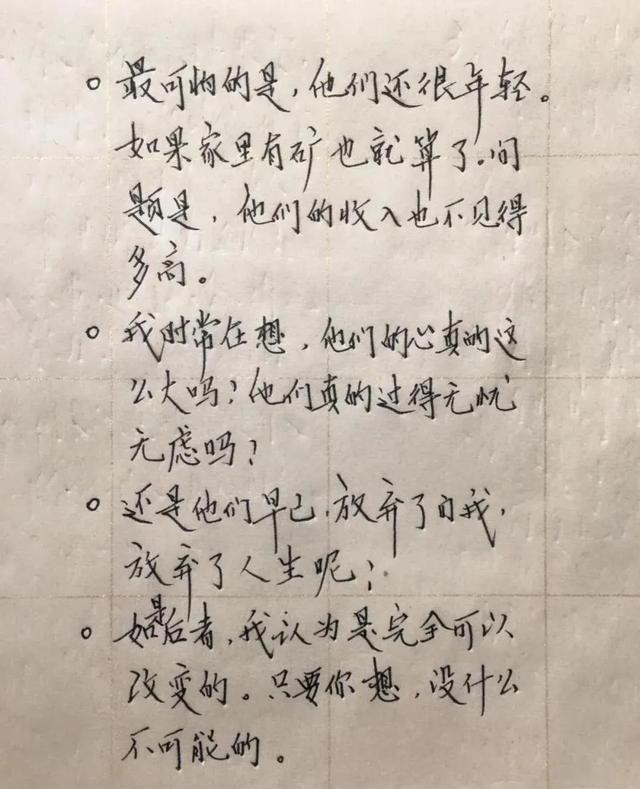 。最可怕的是，他们还很年轻。
如果家里有矿也就算了。问
题是，他们的收入也不见得
多高。
。我时常在想，他们的心真的这
么大吗？他们真的过得无忧
无虑吗？
。还是他们早已放弃了自我，
放弃了人生呢？
。如是后者，我认为是完全可以
改变的。只要你想，没什么
不可能的。